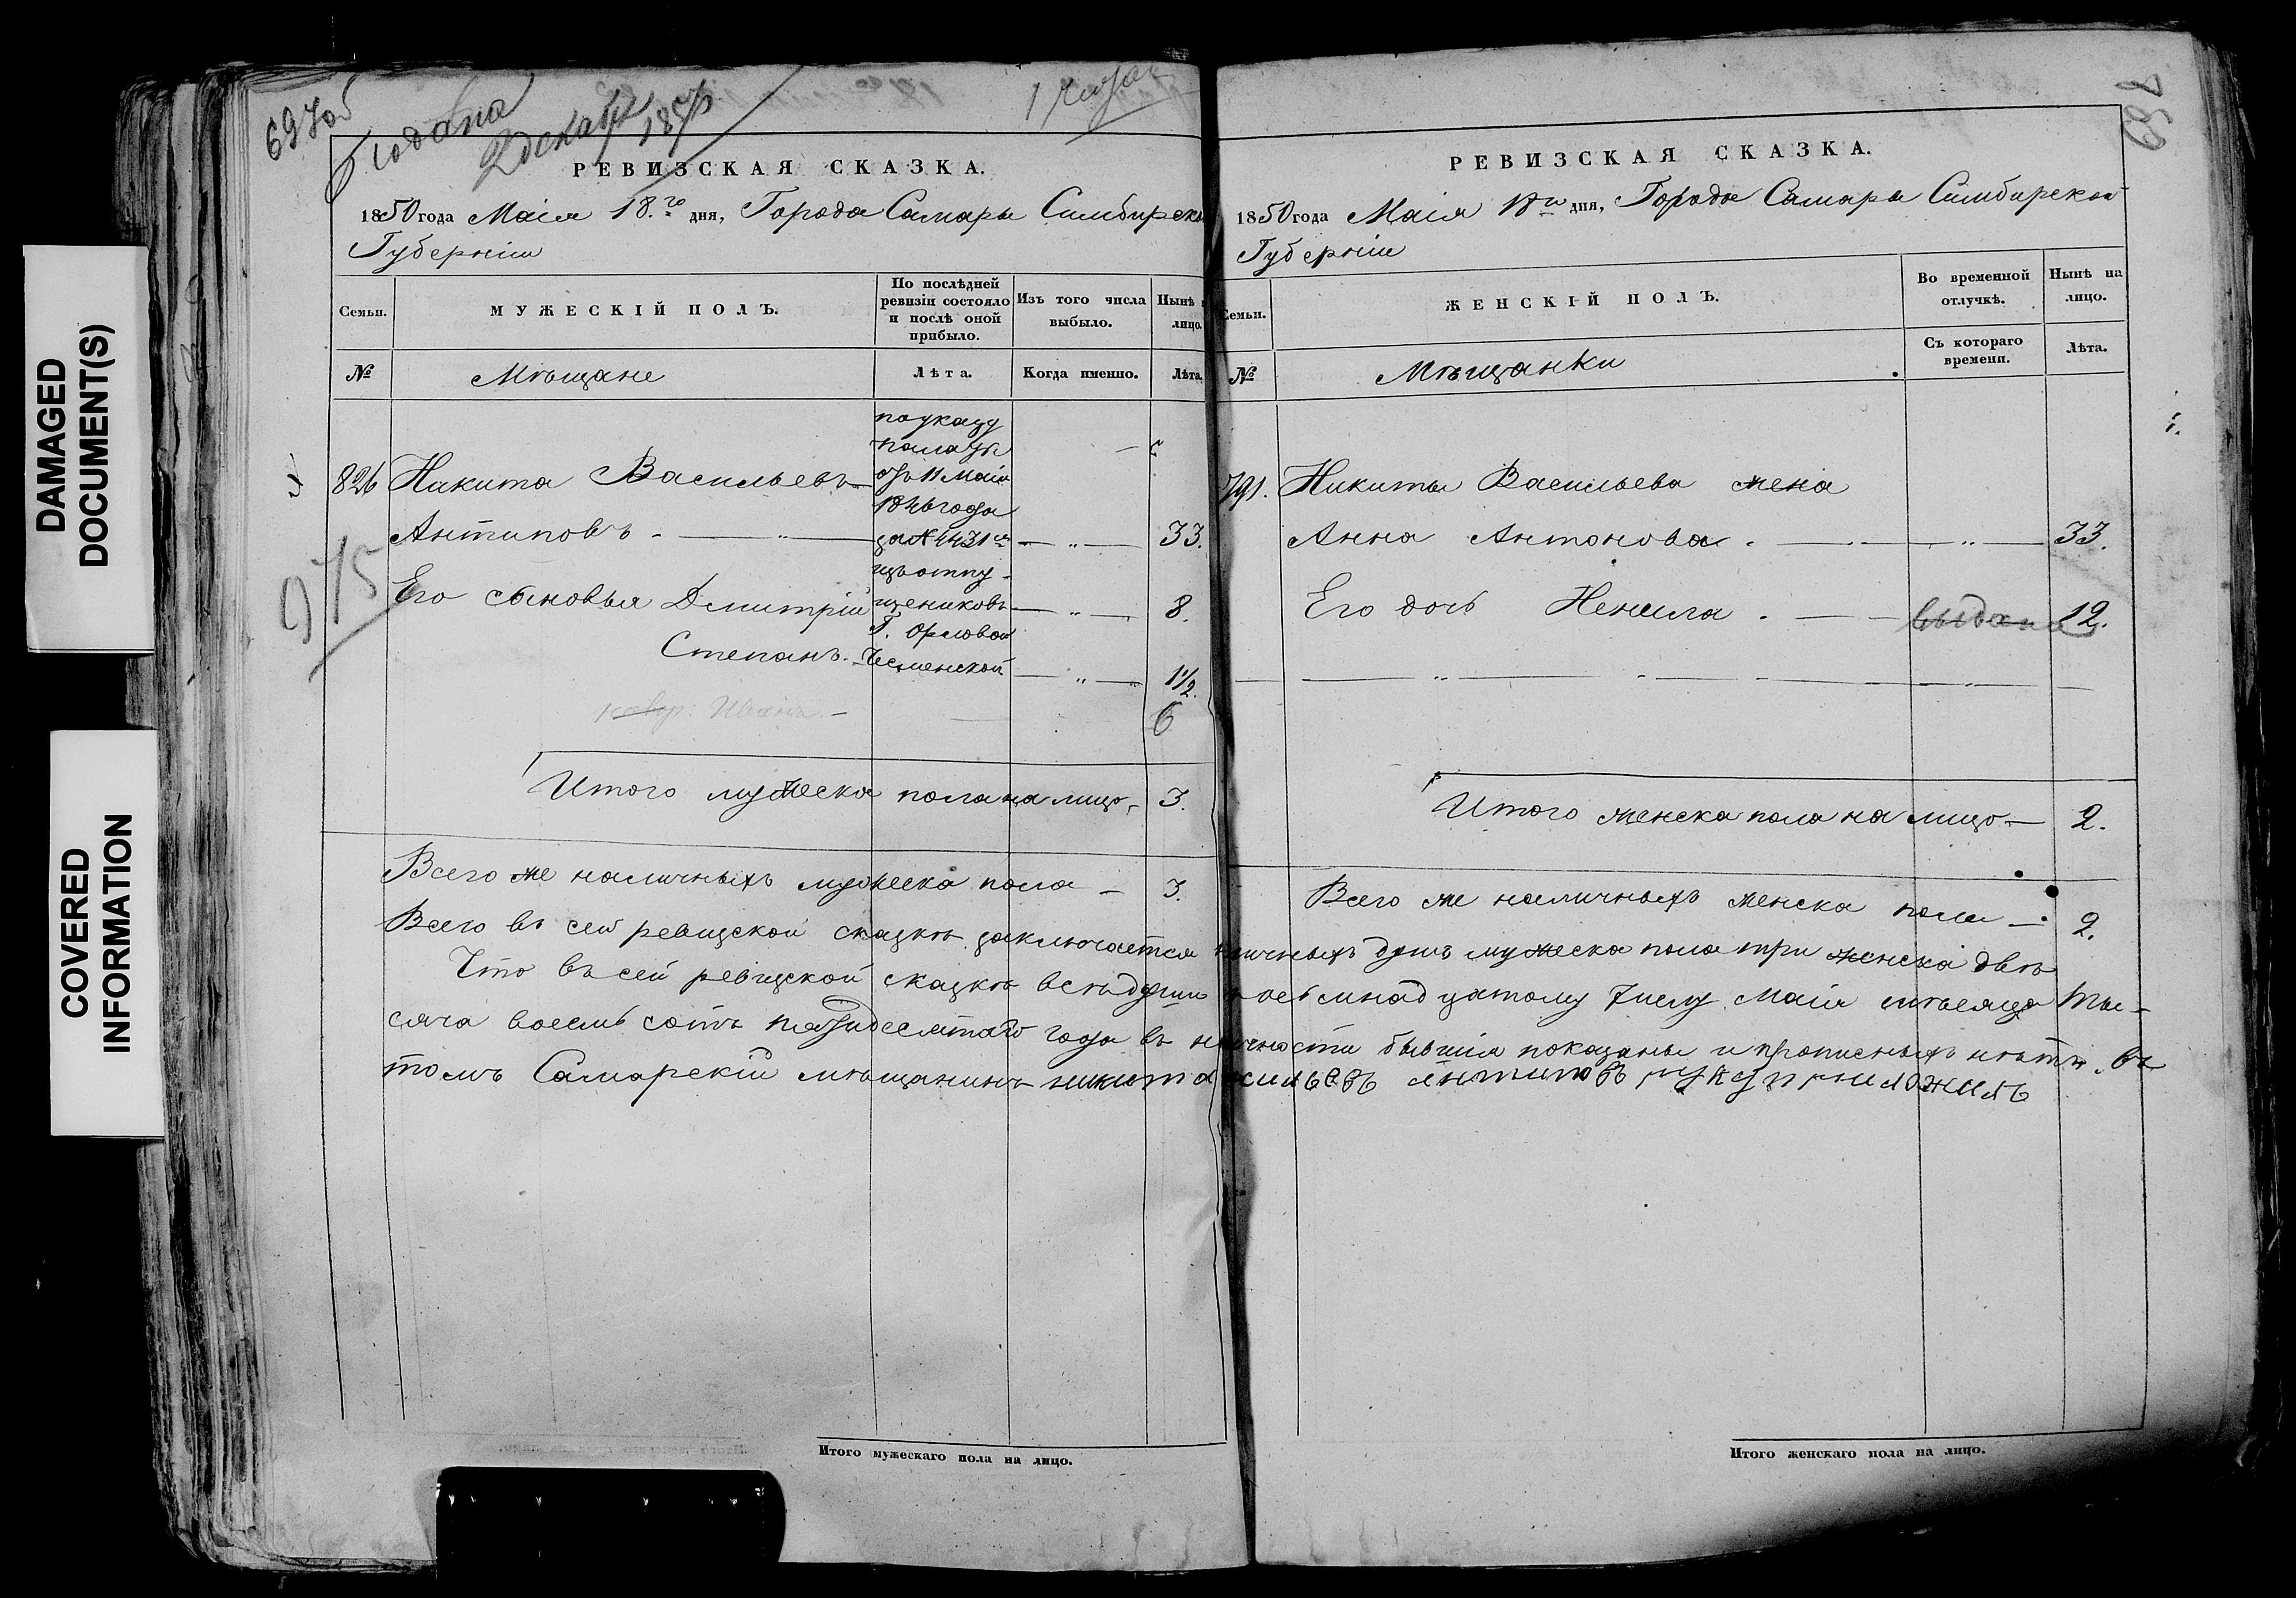 DAMAGED
DOCUMENT(S)
COVERED
INFORMATION
697 об
Подана
2 декабр 1850
РЕВИЗСКАЯ СКАЗКА.
1850 года Маія 18.го дня, Города Самары Симбирско
Губерніи
Семьи.
МУЖЕСКІЙ ПОЛЪ.
По послѣдней
ревизіи состояло
и послѣ оной
прибыло.
Изъ того числа
выбыло.
Нынѣ
лицо.
№
Мѣщане
Лѣта.
Когда именно.
Лѣта.
826
Никита Васильевъ
Антиповъ
33.
по указу
палаты
отъ 11 Маія
1846 года
за № 4431
изъ отпу-
щениковъ
Г. Орловой
Чесменской
Его сыновья Дмитрій
8.
Степанъ.
1½.
Иванъ
6
Итого мужеска пола на лицо
3.
Всего же наличныхъ мужеска пола
3.
698
РЕВИЗСКАЯ СКАЗКА.
1850 года Маія 18го дня, Города Самары Симбирской
Губерніи
Семьи.
ЖЕНСКІЙ ПОЛЪ.
Во временной
отлучкѣ.
Нынѣ на
лицо.
№
Мѣщанки
Съ котораго
времени.
Лѣта.
791.
Никиты Васильева жена
Анна Антонова
33.
Его дочь Ненила
выдана
12.
Итого женска пола на лицо
2.
Всего же наличныхъ женска пола
2.
Всего въ сей ревизской сказкѣ заключается личныхъ душъ мужеска пола три женска двѣ
Что въ сей ревизской сказкѣ всѣ души восьмнадцатому числу Маія мѣсяца ты-
сяча восемь сотъ пятидесятаго года въ личности бывшія показаны и прописныхъ нѣтъ, въ
томъ Самарскій мѣщанинъ никита сильевъ антиповъ руку приложилъ
975
Итого мужескаго пола на лицо.
Итого женскаго пола на лицо.